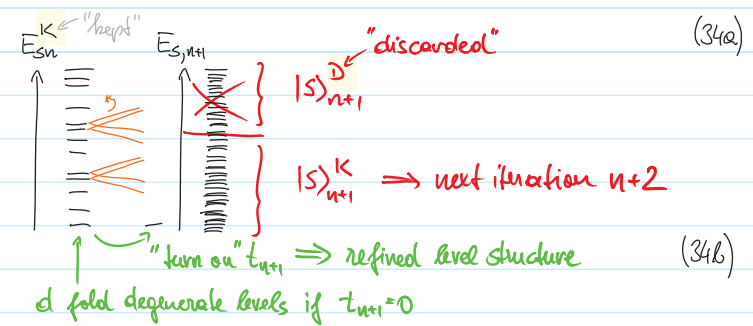 E_{sn}^K "kept" E_{s,n+1} "discarded" (34a)
|s⟩_{n+1}^D
|s⟩_{n+1}^K ⟹ next iteration n+2
"turn on" t_{n+1} ⟹ refined level structure (34b)
d fold degenerate levels if t_{n+1}=0